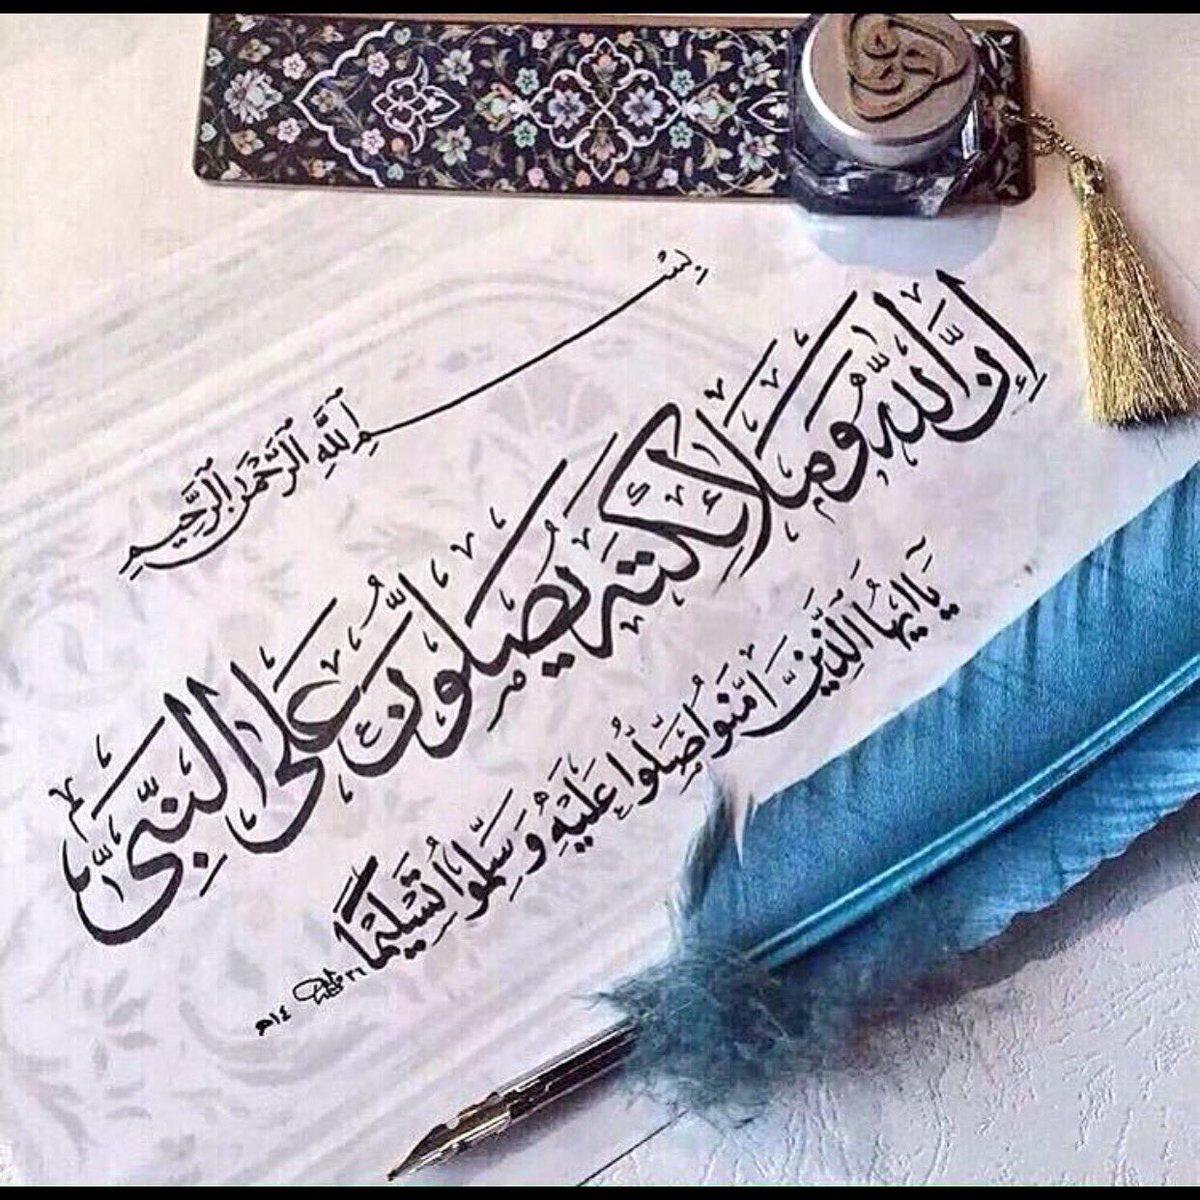 بِسْمِ ٱللَّهِ ٱلرَّحْمَٰنِ ٱلرَّحِيمِ
إِنَّ اللَّهَ وَمَلَائِكَتَهُ يُصَلُّونَ عَلَى النَّبِيِّ
يَا أَيُّهَا ٱلَّذِينَ آمَنُوا صَلُّوا عَلَيْهِ وَسَلِّمُوا تَسْلِيمًا